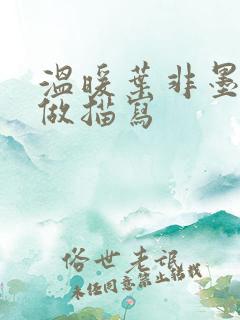 温暖葉非墨
做描寫
俗世老訞
未经同意禁止转载